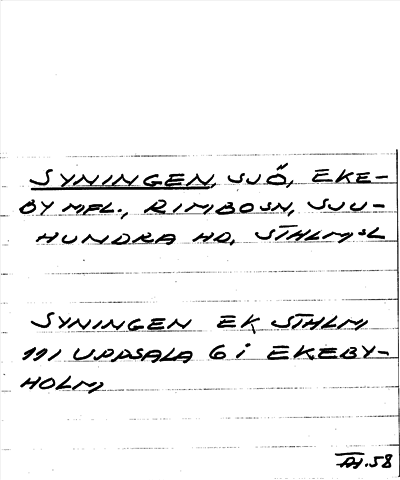 SYNINGEN, SJÖ, EKE-
BY MFL., RIMBO SN, SJU-
HUNDRA HD, STHLMS L
SYNINGEN EK STHLM
111 UPPSALA 6 i EKEBY-
HOLM,